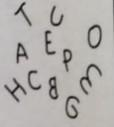 T C
A E P O
H C B G E